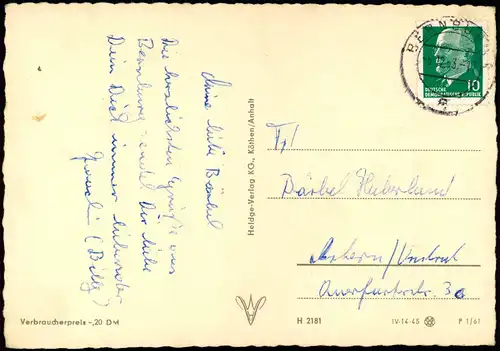 Meine liebe Bärbel
Die herzlichsten Grüße aus
Bernburg sendet Dir liebe
Dein Dich immer liebender
(Billy)
Heldge-Verlag KG., Köthen/Anhalt
BERNBURG
10
DEUTSCHE
DEMOKRATISCHE REPUBLIK
Frl
Bärbel Haberland
Artern/Unstrut
Querfurterstr. 30
Verbraucherpreis -,20 DM
H 2181
IV-14-45
P 1/61